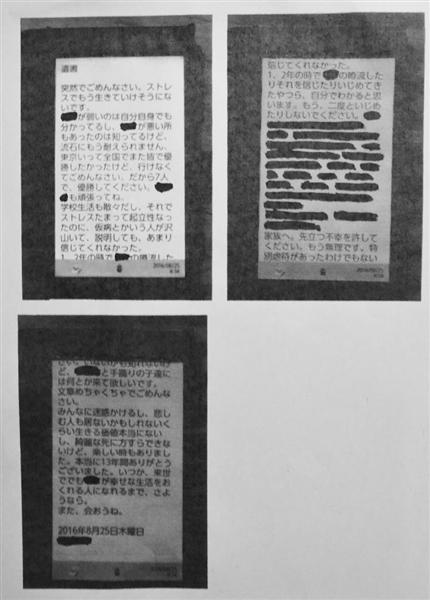 遺書
突然でごめんなさい。ストレ
スでもう生きていけそうにな
いです。
が弱いのは自分自身でも
分かってるし、が悪い所
もあったのは知ってるけど、
流石にもう耐えられません。
東京いって全国でまた皆で優
勝したかったけど、行けなく
てごめんなさい。だから7人
で、優勝してください。
も頑張ってね。
学校生活も散々だし、それで
ストレスたまって起立性なっ
たのに、仮病とかいう人が沢
山いて、説明しても、あまり
信じてくれなかった。
1、2年の時での噂流した
2016/08/25
信じてくれなかった。
1、2年の時での噂流した
りそれを信じたりいじめてき
たやつら、自分でわかると思
います。もう、二度といじめ
たりしないでください。
家族へ。先立つ不幸を許して
ください。もう無理です。特
別虐待があったわけでもない
2016/08/25
ど、と手踊りの子達に
は何とか来て欲しいです。
文章めちゃくちゃでごめんな
さい。
みんなに迷惑かけるし、悲し
む人も居ないかもしれないく
らい生きる価値本当にない
し、綺麗な死に方すらできな
いけど、楽しい時もありまし
た。本当に13年間ありがとう
ございました。いつか、来世
ででもが幸せな生活をお
くれる人になれるまで、さよ
うなら。
また、会おうね。
2016年8月25日木曜日